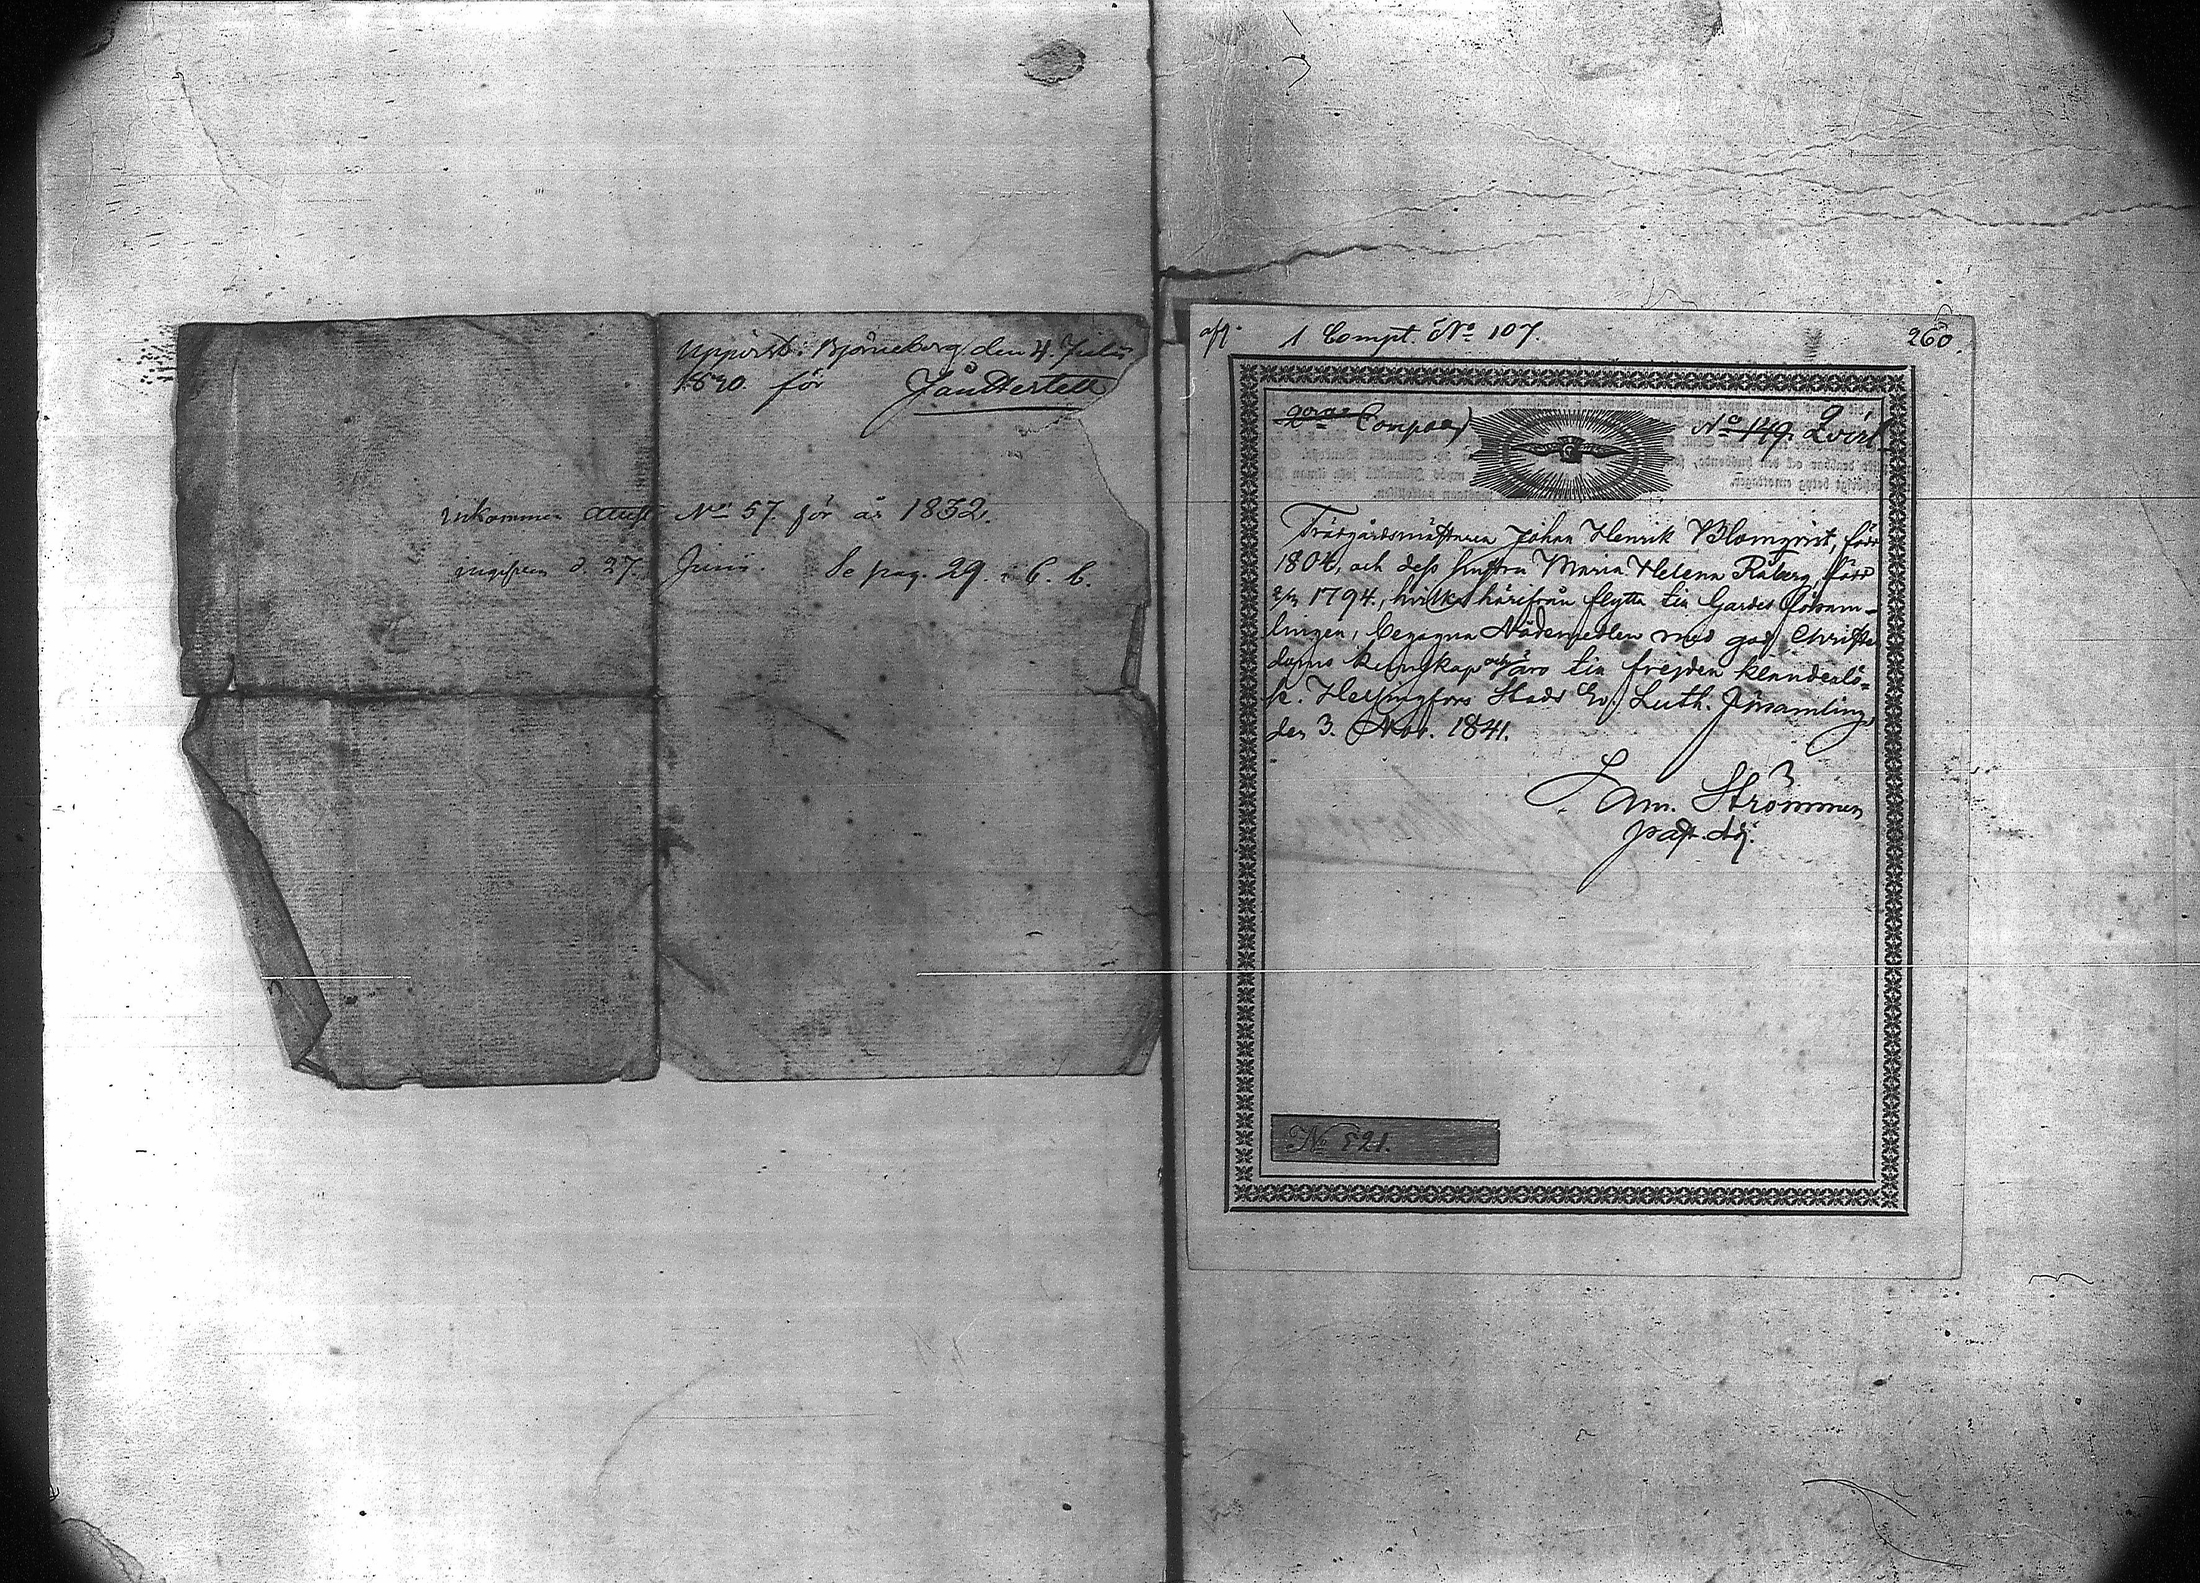 Uppvist. Björneborg den 4. Julii
1830 för
inkommen attest No 57 för år 1832.
d. 27. Junii. Se pag. 29. i C. b.
1 Compt. No 107.
260.
Compag
No 149. Qvist
Trädgårdsmästaren Johan Henrik Blomqvist, född
1804, och dess hustru Maria Helena Råberg, född
1794, hvilka härifrån flytta till Gardes försam-
lingen, begagna Nådemedlen med god Christen-
doms kunskap och äro till frejden klanderlö-
se. Helsingfors Stads Ev. Luth. Församling
den 3. Nov. 1841.
Sam. Strömmer
past. adj.
No 521.